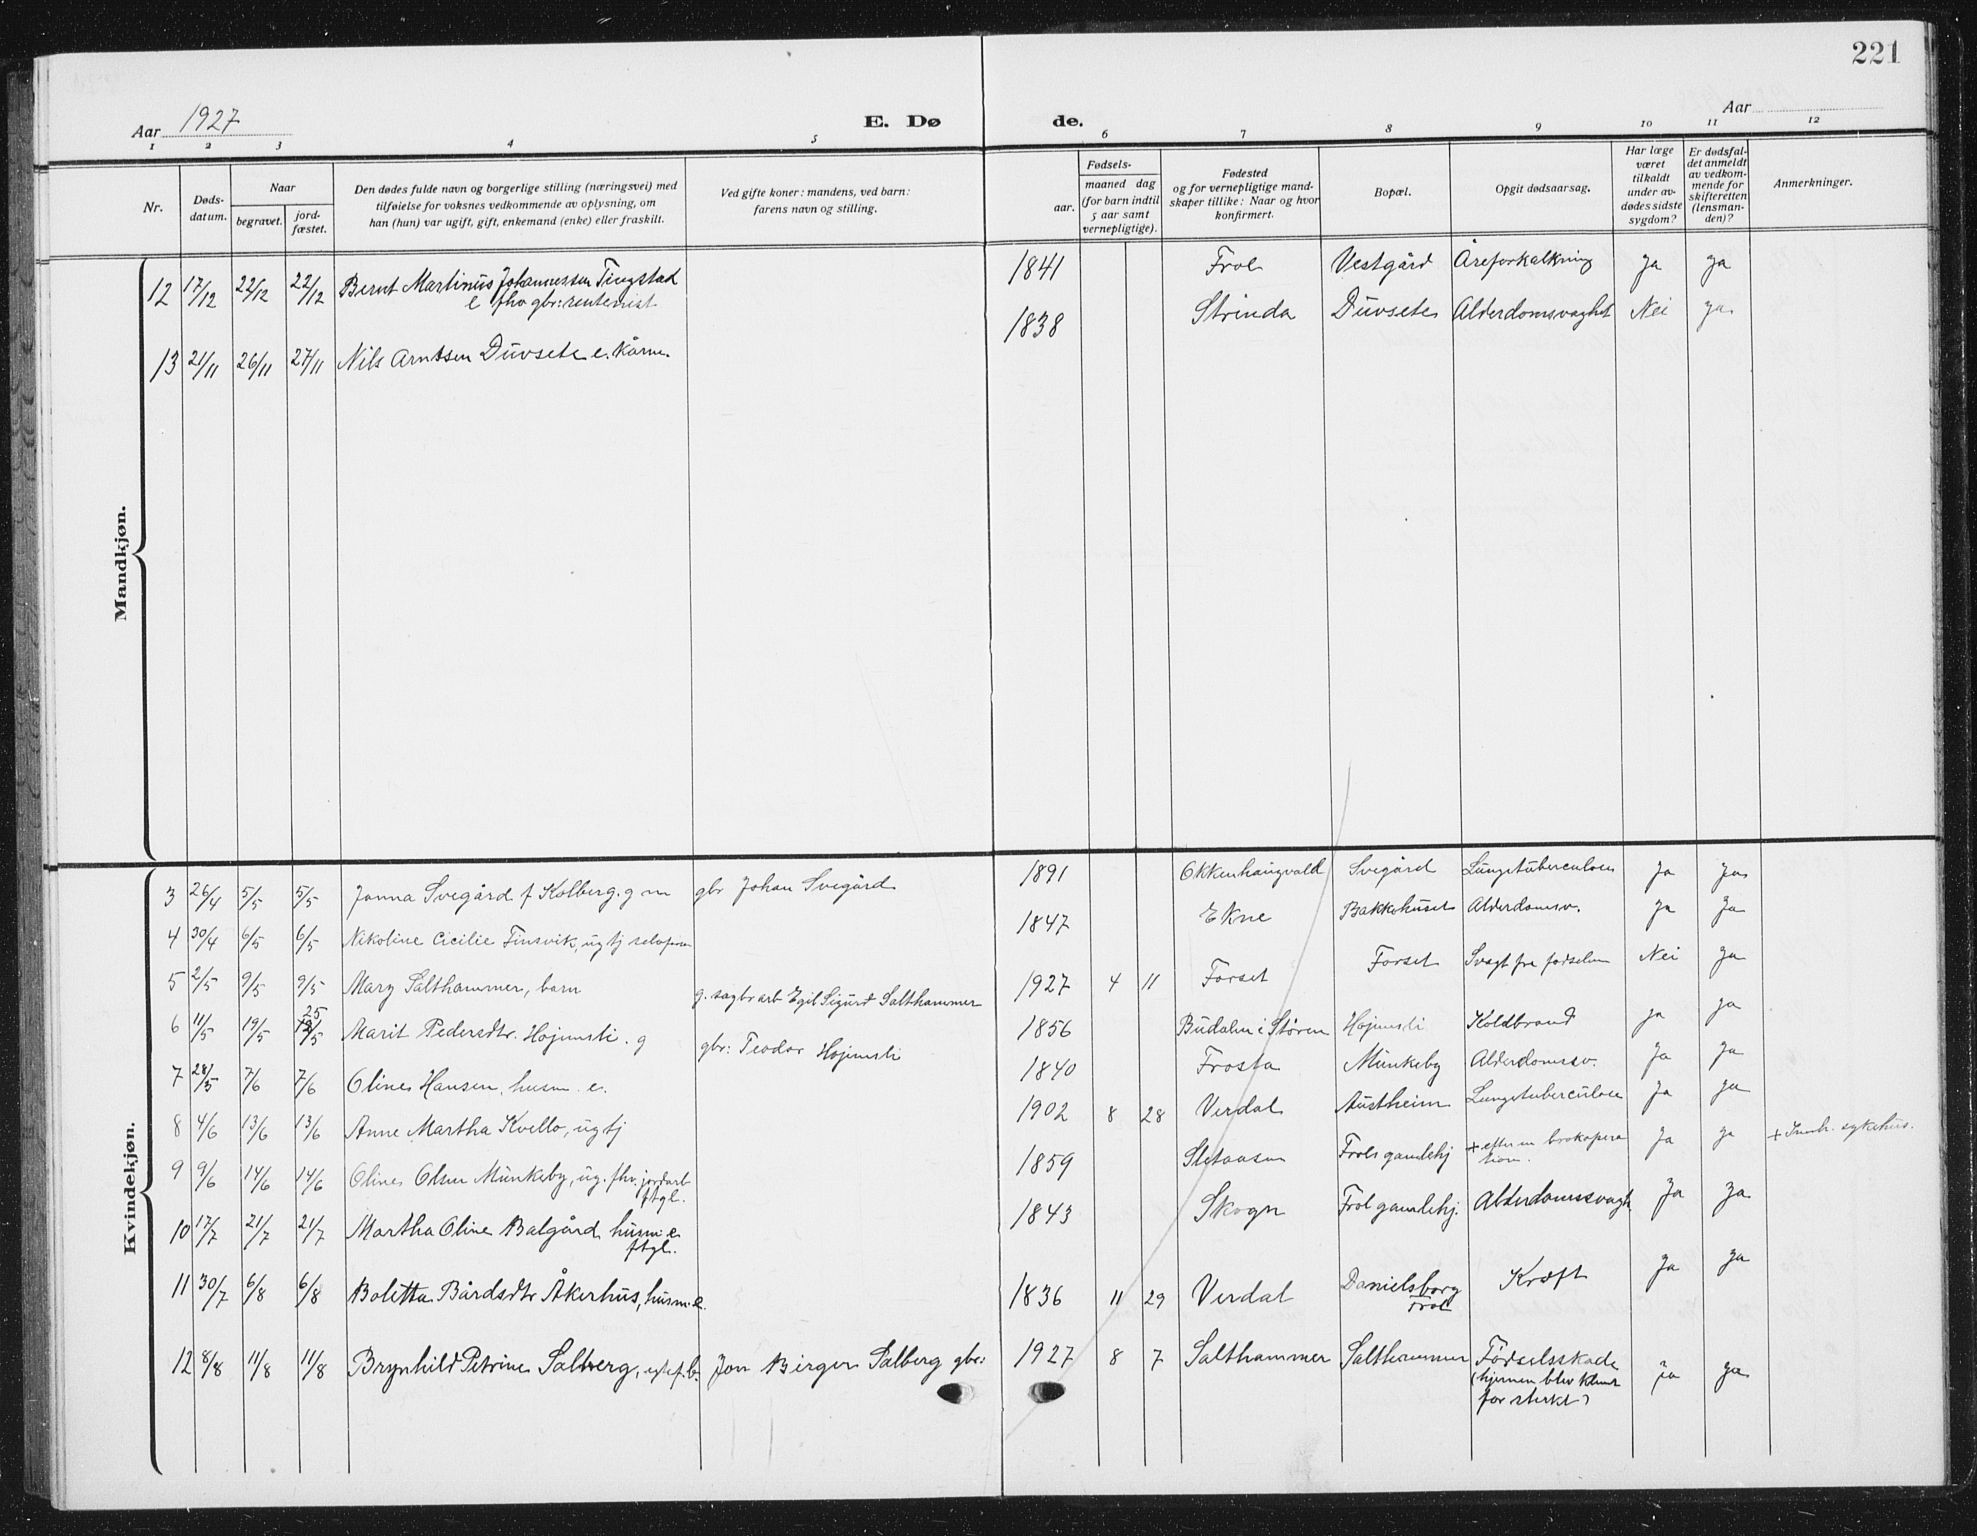 221
Aar 1927
E. Dø de.
Aar
1 2 3 4 5 6 7 8 9 10 11 12
Nr.
Døds-
datum.
Naar
begravet.
jord-
fæstet.
Den dødes fulde navn og borgerlige stilling (næringsvei) med
tilføielse for voksnes vedkommende av oplysning, om
han (hun) var ugift, gift, enkemand (enke) eller fraskilt.
Ved gifte koner: mandens, ved barn:
farens navn og stilling.
Fødsels-
aar.
maaned dag
(for barn indtil
5 aar samt
vernepligtige).
Fødested
og for vernepligtige mand-
skaper tillike: Naar og hvor
konfirmert.
Bopæl.
Opgit dødsaarsag.
Har læge
været
tilkaldt
under av-
dødes sidste
sygdom?
Er dødsfal-
det anmeldt
av vedkom-
mende for
skifteretten
(lensman-
den)?
Anmerkninger.
Mandkjøn.
12 17/12 22/12 22/12 Bernt Martinus Johannessen Tingstad 1841 Frol Vestgård Åreforkalkning Ja Ja
e fhv gbr: rentenist
13 21/11 26/11 27/11 Nils Arntsen Duvsete e. kårm. 1838 Strinda Duvsete Alderdomsvaghet Nei Ja
Kvindekjøn.
3 26/4 5/5 5/5 Janna Svegård f Kolberg. g m gbr Johan Svegård 1891 Okkenhaugvald Svegård Lungetuberculose Ja Ja
4 30/4 6/5 6/5 Nikoline Cicilie Finsvik, ug tj 1847 Ekne Bakkehuset Alderdomsv. Ja Ja
5 2/5 9/5 9/5 Mary Salthammer, barn g. sagbrarb Egil Sigurd Salthammer 1927 4 11 Forset Forset Svagt fra fødselen Nei Ja
25
6 11/5 19/5 /5 Marit Pedersdtr. Højemsli. g gbr: Teodor Højemsli 1856 Budalen i Støren Højemsli Koldbrand Ja Ja
7 28/5 7/6 7/6 Oline Hansen, husm. e. 1840 Frosta Munkeby Alderdomsv. Ja Ja
8 4/6 13/6 13/6 Anne Martha Kvello, ug tj 1902 8 28 Verdal Austheim Lungetuberculose Ja Ja
9 9/6 14/6 14/6 Oline Olsen Munkeby, ug. fhv. jordarb 1859 Sletaasen Frols gamlehj + efter en brokopera Ja Ja + Innh. sykehus.
ftgl. tion.
10 17/7 21/7 21/7 Martha Oline Balgård husm e 1843 Skogn Frol gamlehj. Alderdomssvagh Ja Ja
ftgl.
11 30/7 6/8 6/8 Boletta Bårdsdtr Åkerhus, husm. e. 1836 11 29 Verdal Danielsborg Kræft Ja Ja
Frol
12 8/8 11/8 11/8 Brynhild Petrine Salberg, egtef. b. Jon Birger Salberg gbr: 1927 8 7 Salthammer Salthammer Fødselsskade Ja Ja
(hjernen blev klemt
for sterkt)